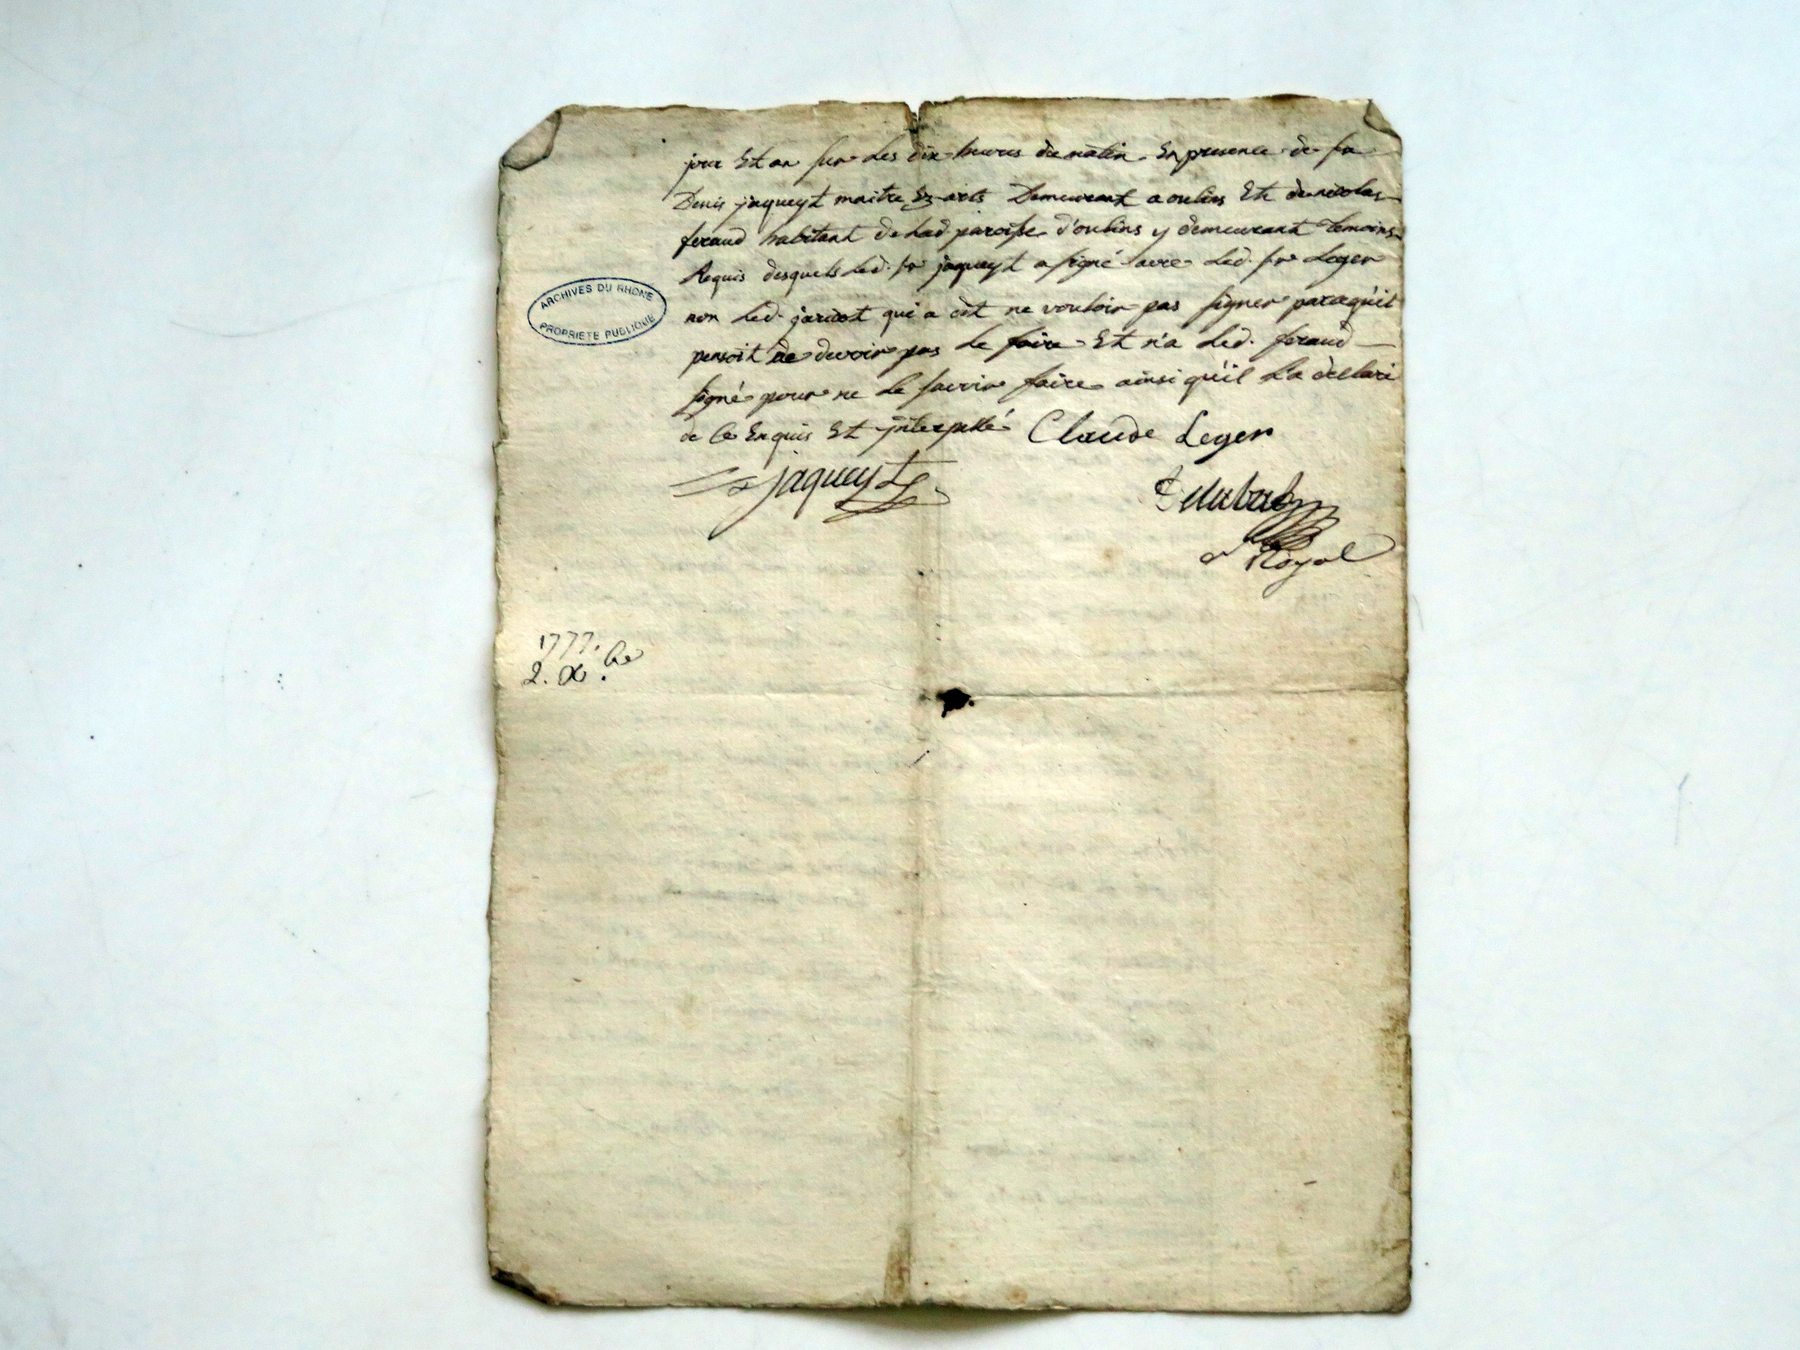 jour Et an sur les dix heures du matin En presence de sr
Denis jaqueyt maitre Es arts Demeurant a oulins Et de nicolas
feraud habitant de lad paroisse d'oulins y demeurant temoins
Requis desquels led. sr jaqueyt a signé avec led. sr Leger
non led. jaricot qui a dit ne vouloir pas signer parcequ'il
pensoit ne devoir pas le faire Et n'a led. feraud
signé pour ne le savoir faire ainsi qu'il l'a declaré
de ce Enquis Et jnterpellé Claude Leger
jaqueyt
nre Royal
ARCHIVES DU RHONE
PROPRIETE PUBLIQUE
1777.
2. Xbre